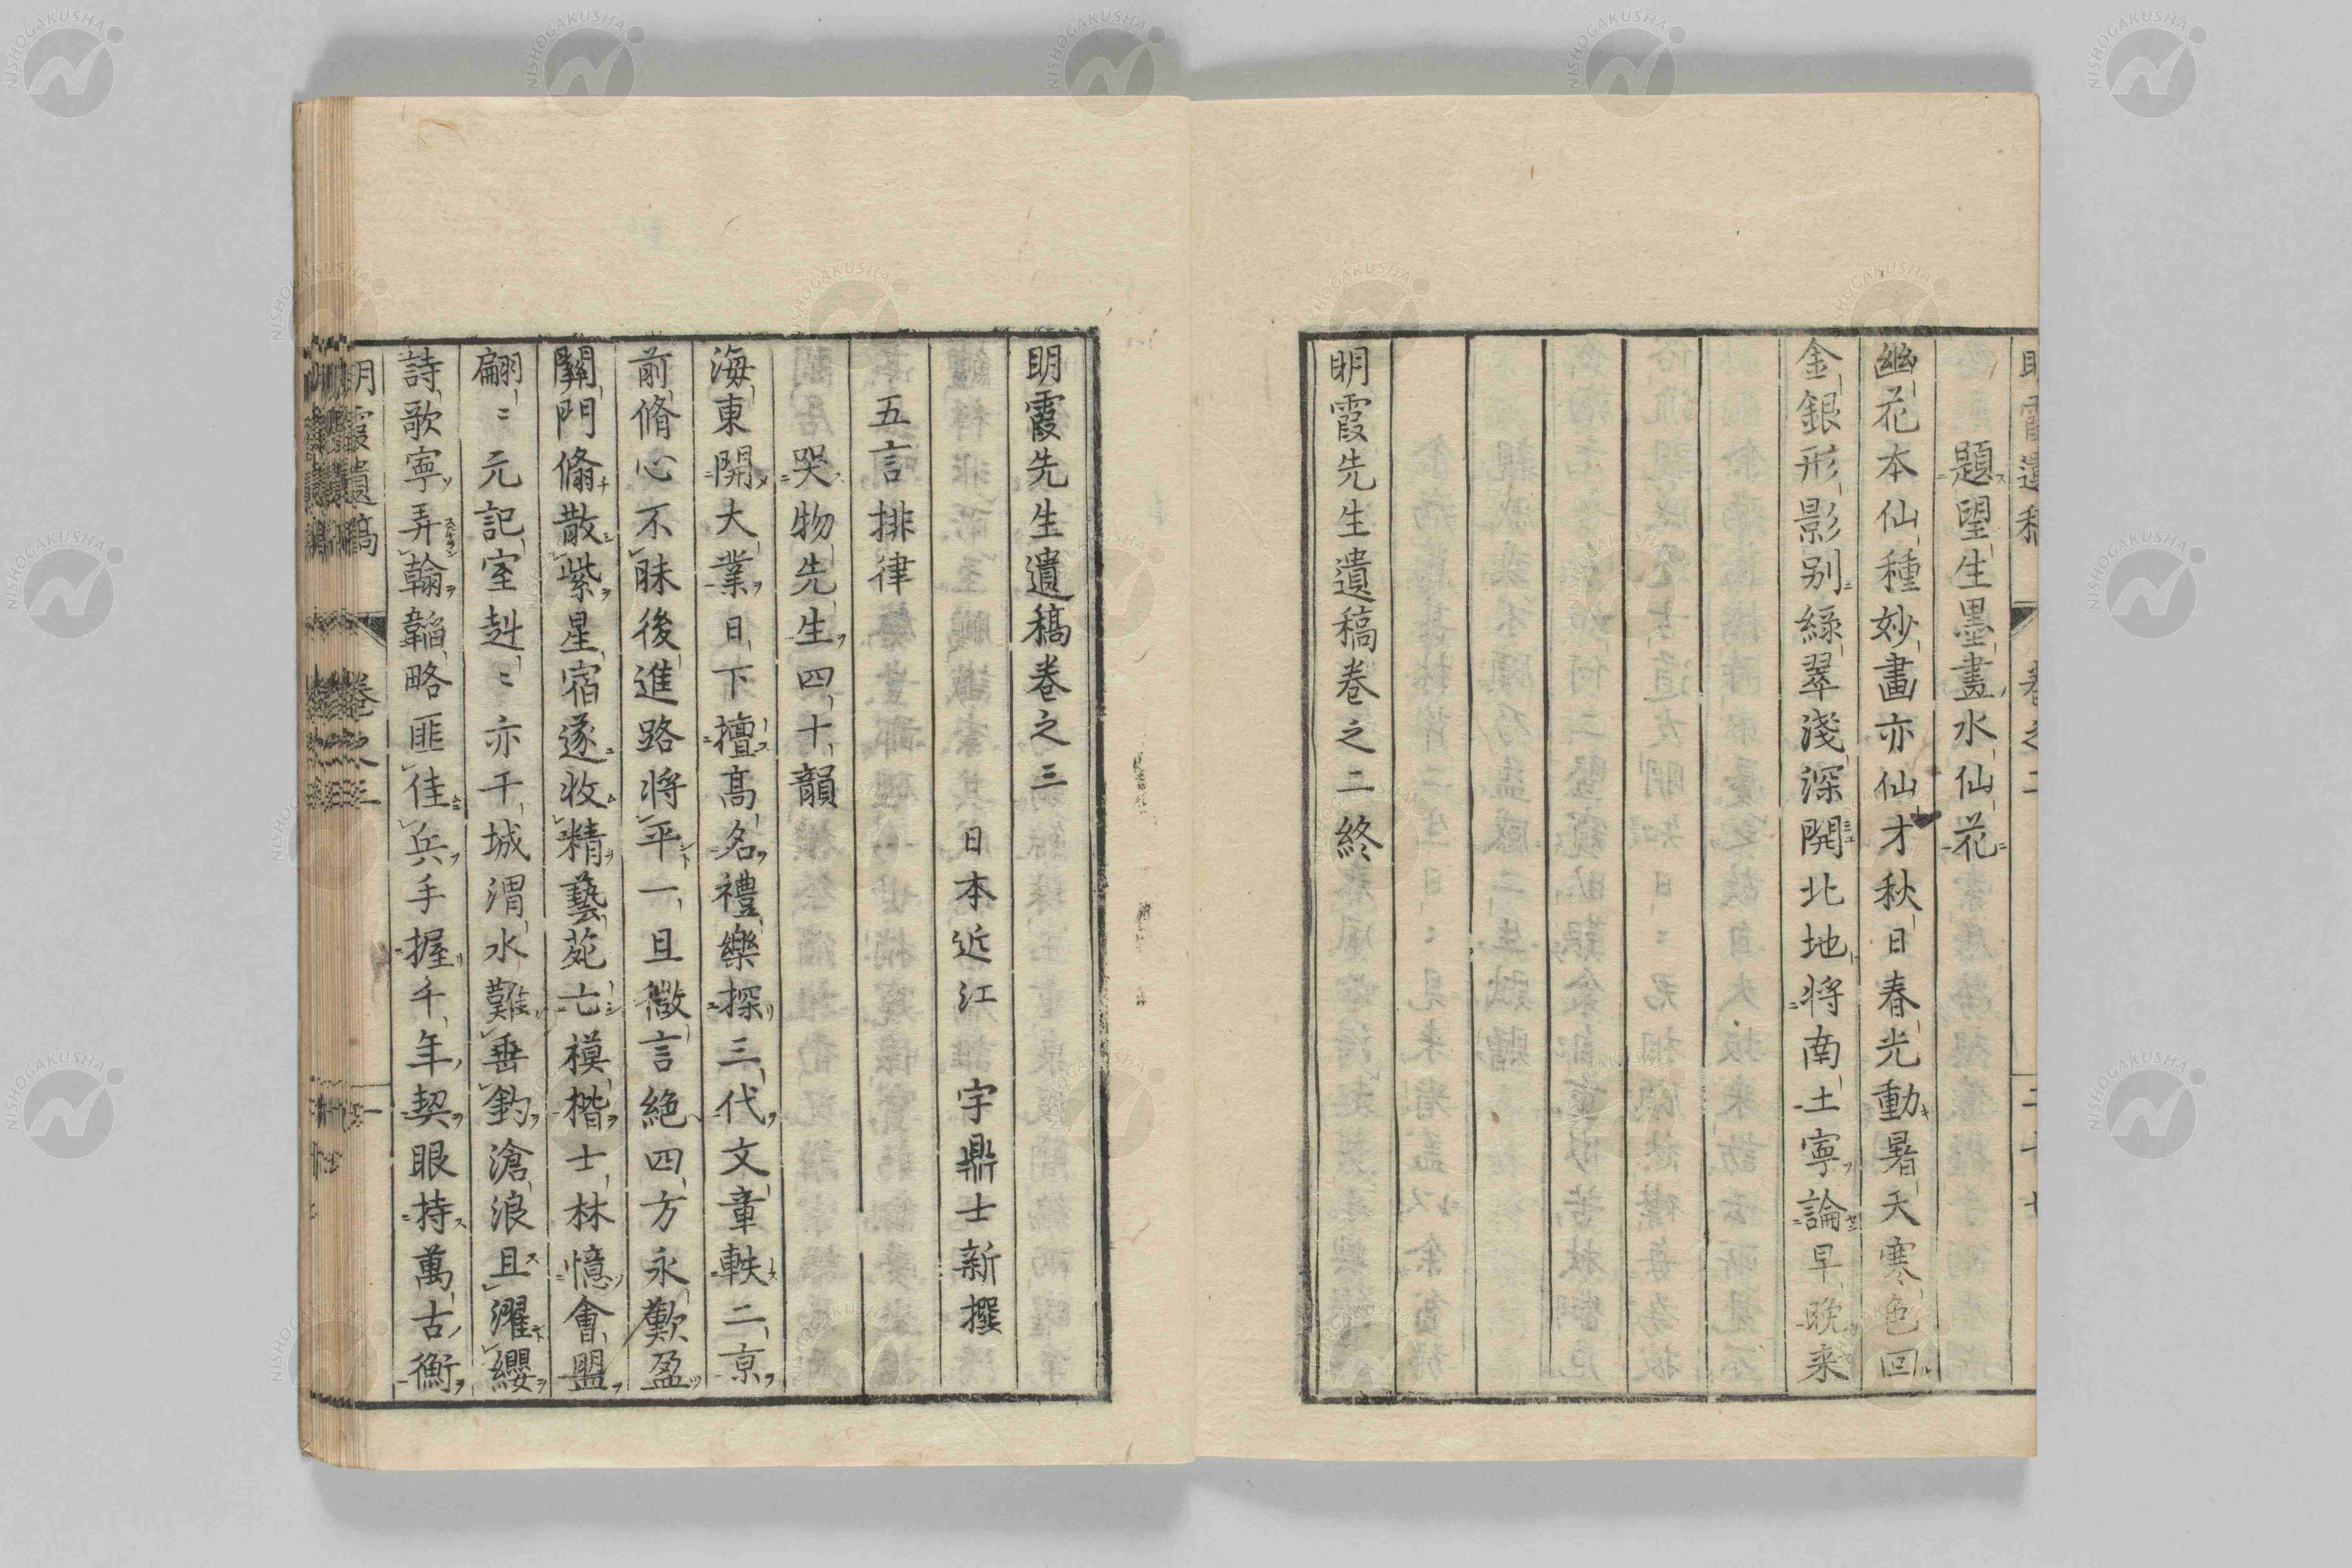 題望生墨畫水仙花
幽花本仙種妙畫亦仙才秋日春光動暑天寒色回
金銀形影別緑翠淺深開北地将南土寧論早晚来
明霞先生遺稿卷之二終
明霞先生遺稿卷之三
日本近江 宇鼎士新撰
五言排律
哭物先生四十韻
海東開大業日下擅髙名禮樂探三代文章軼二京
前脩心不昧後進路将平一旦微言絶四方永歎盈
關門翛散紫星宿遂收精藝苑亡模楷士林憶會盟
翩〻元記室赳〻亦干城渭水難垂釣滄浪且濯纓
詩歌寧弄翰韜略匪佳兵手握千年契眼持萬古衡
明霞遺稿 卷之三 一
NISHOGAKUSHA